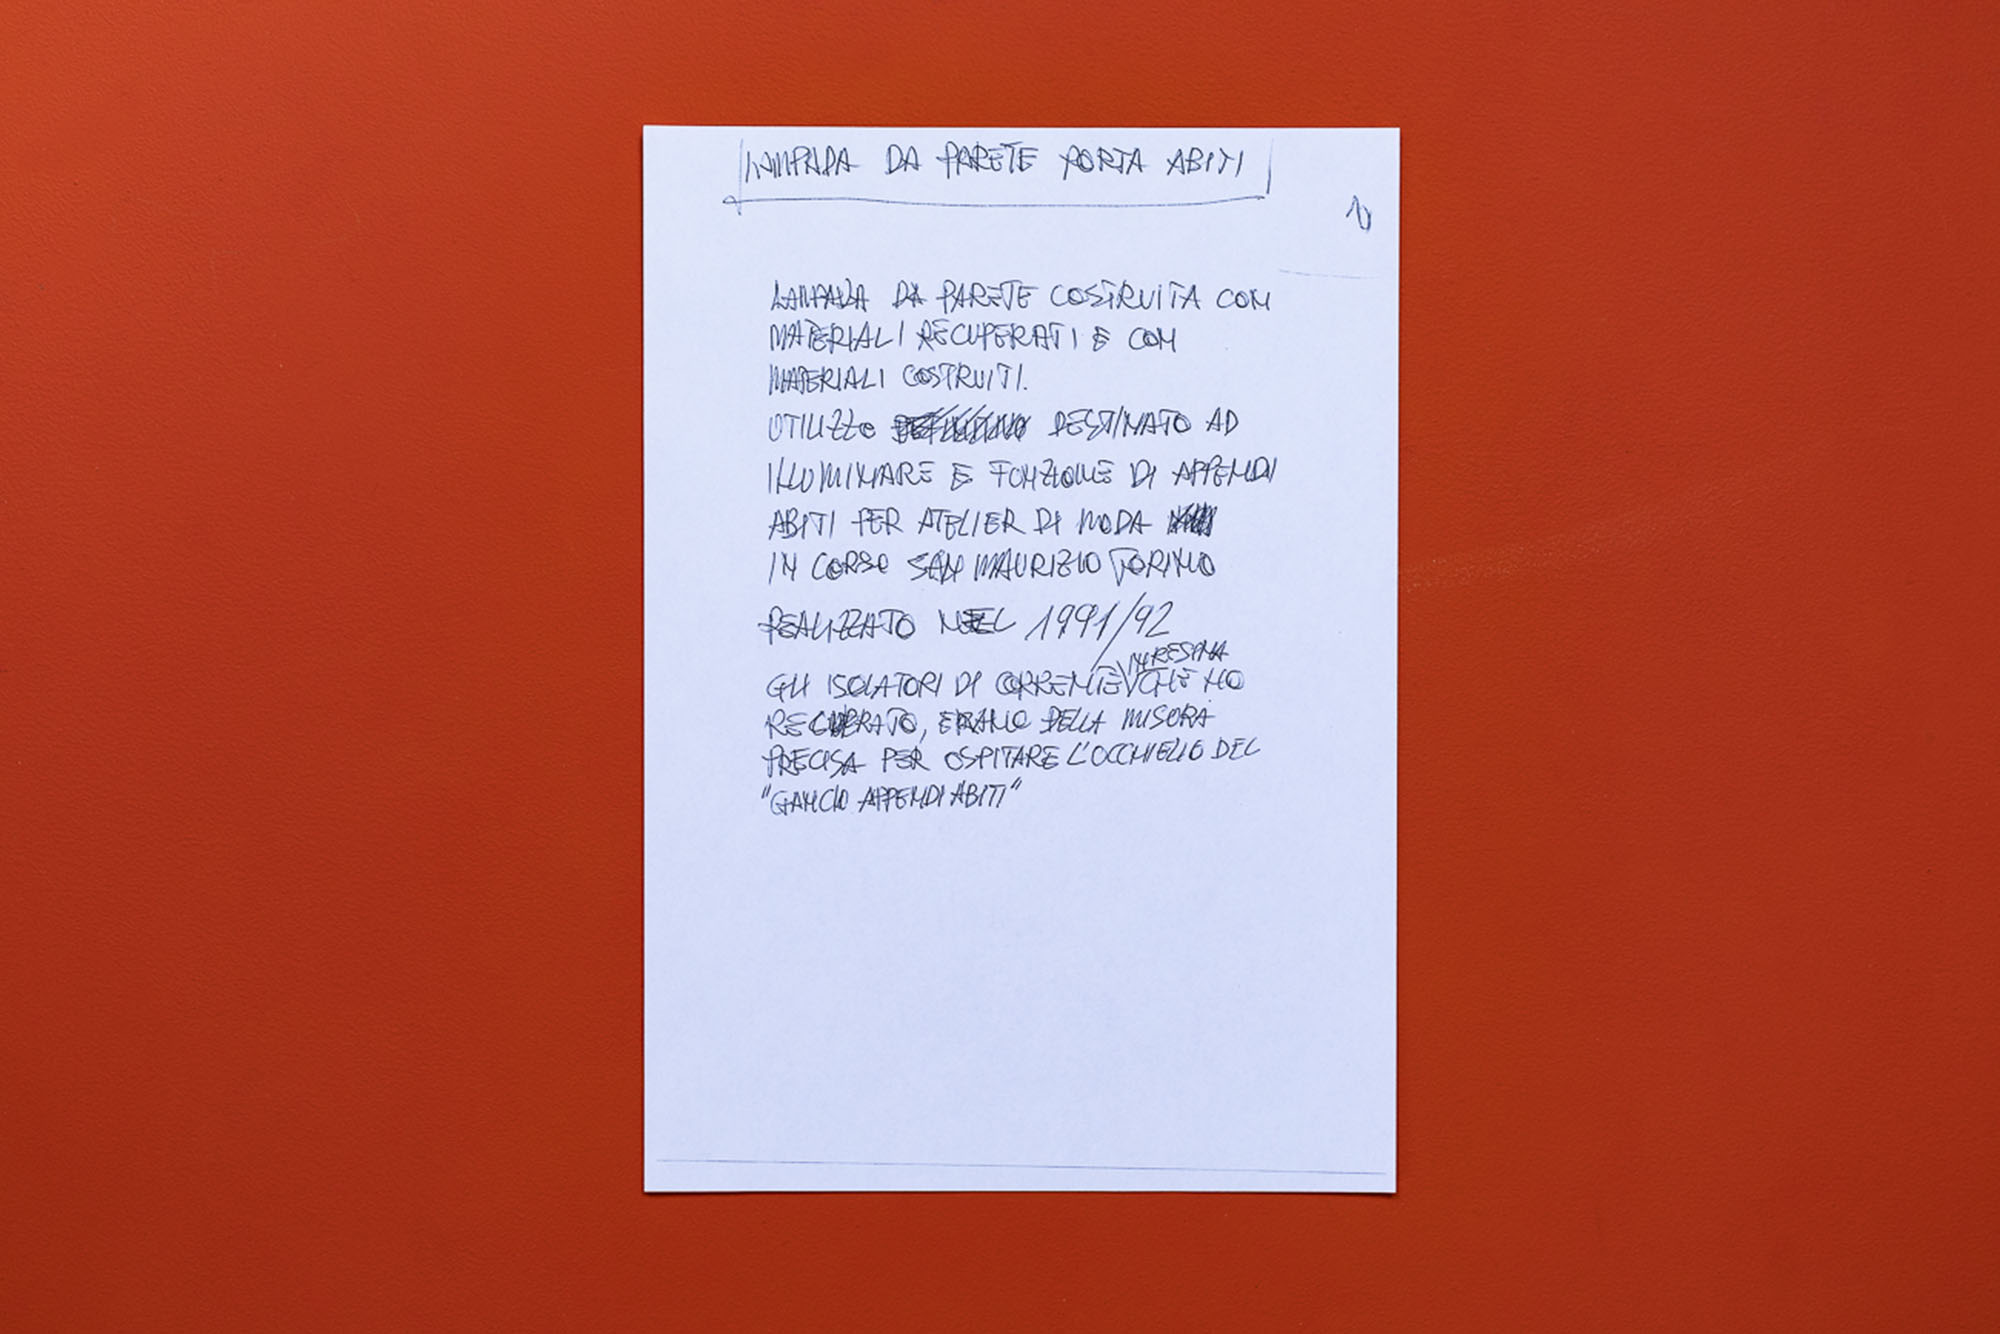 LAMPADA DA PARETE PORTA ABITI
LAMPADA DA PARETE COSTRUITA CON
MATERIALI RECUPERATI E CON
MATERIALI COSTRUITI.
UTILIZZO DESTINATO AD
ILLUMINARE E FUNZIONE DI APPENDI
ABITI PER ATELIER DI MODA
IN CORSO SAN MAURIZIO TORINO
REALIZZATO NEL 1991/92
IN RESINA
GLI ISOLATORI DI CORRENTE CHE HO
RECUPERATO, ERANO DELLA MISURA
PRECISA PER OSPITARE L'OCCHIELLO DEL
"GANCIO APPENDI ABITI"